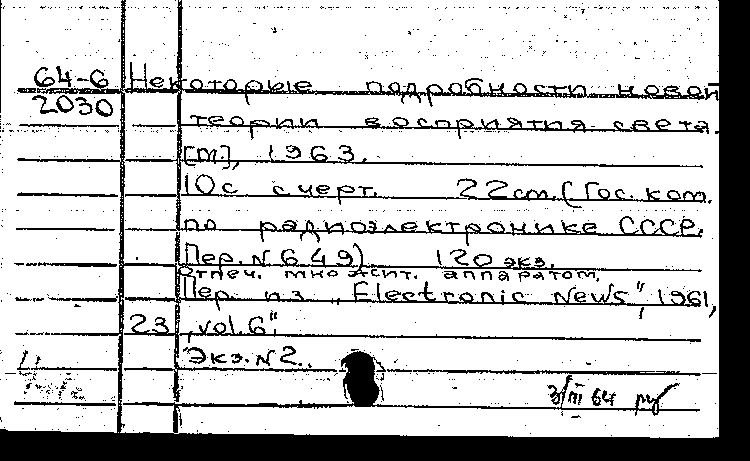 64-6 Некоторые подробности новой
2030 теории восприятия света.
[М.], 1963.
10с с черт. 22 cm. (Гос. ком.
по радиоэлектронике СССР.
Пер. N 649) 120 экз.
Отпеч. множит. аппаратом.
Пер. из „Electronic News", 1961,
23, vol. 6".
Экз. N2.
3/III 64